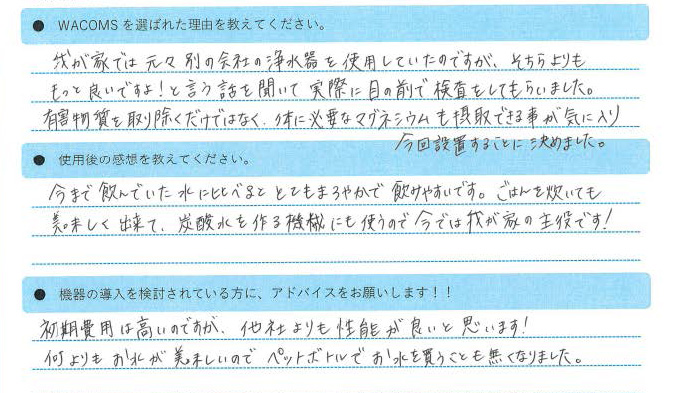 ● WACOMS を選ばれた理由を教えてください。
我が家では元々別の会社の浄水器を使用していたのですが、そちらよりも
もっと良いですよ！と言う話を聞いて実際に目の前で検査をしてもらいました。
有害物質を取り除くだけではなく、体に必要なマグネシウムも摂取できる事が気に入り
今回設置することに決めました。
● 使用後の感想を教えてください。
今まで飲んでいた水に比べるととてもまろやかで飲みやすいです。ごはんを炊いても
美味しく出来て、炭酸水を作る機械にも使うので今では我が家の主役です！
● 機器の導入を検討されている方に、アドバイスをお願いします！！
初期費用は高いのですが、他社よりも性能が良いと思います！
何よりもお水が美味しいのでペットボトルでお水を買うことも無くなりました。